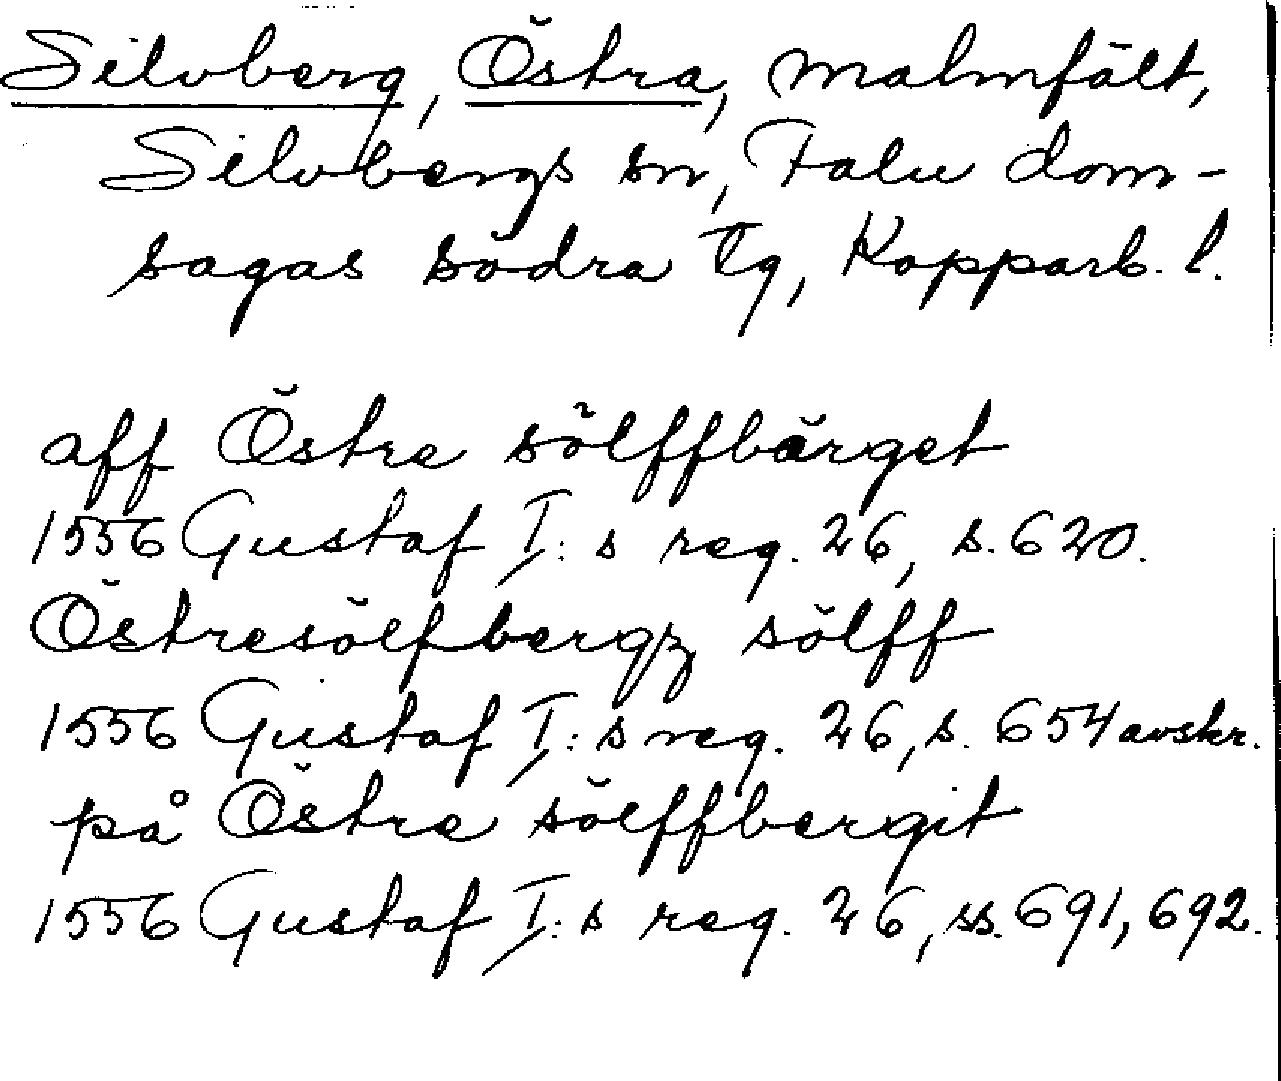 Silvberg, Östra, malmfält,
Silvbergs sn, Falu dom-
sagas södra tg, Kopparb. l.
aff Östre sölffbärget
1556 Gustaf I:s reg. 26, s. 620.
Östresölfbergz sölff
1556 Gustaf I:s reg. 26, s. 654 avskr.
på Östre sölffbergit
1556 Gustaf I:s reg. 26, ss. 691, 692.